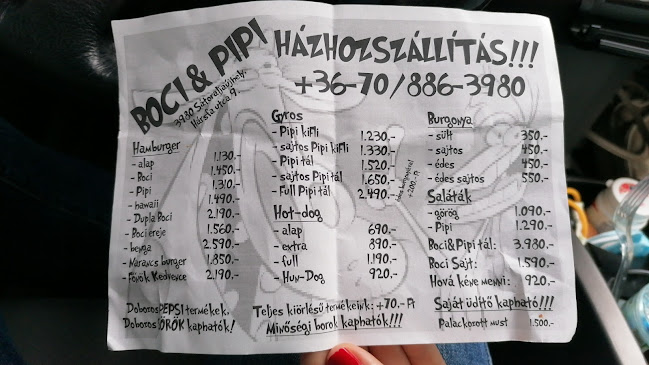 BOCI & PIPI
3980 Sátoraljaújhely,
Hársfa utca 9.
HÁZHOZSZÁLLÍTÁS!!!
+36-70/886-3980
Hamburger
- alap 1.130.-
- Boci 1.450.-
- Pipi 1.310.-
- hawaii 1.490.-
- Dupla Boci 2.190.-
- Boci ereje 1.560.-
- betyga 2.590.-
- Narancs burger 1.850.-
- Főnök Kedvence 2.190.-
Dobozos PEPSI termékek.
Dobozos SÖRÖK kaphatók!
Gyros
- Pipi kifli 1.230.-
- sajtos Pipi kifli 1.330.-
- Pipi tál 1.520.-
- sajtos Pipi tál 1.650.-
- Full Pipi tál 2.490.-
+200.-Ft
Hot-dog
- alap 690.-
- extra 890.-
- full 1.190.-
- Hun-Dog 920.-
Teljes kiőrlésű termékeink: +70.-Ft
Minőségi borok kaphatók!!!
Burgonya
- sült 350.-
- sajtos 450.-
- édes 450.-
- édes sajtos 550.-
Saláták
- görög 1.090.-
- Pipi 1.290.-
Boci&Pipi tál: 3.980.-
Boci Sajt: 1.590.-
Hová kéne menni: 920.-
Saját üdítő kapható!!!
Palackozott must 1.500.-